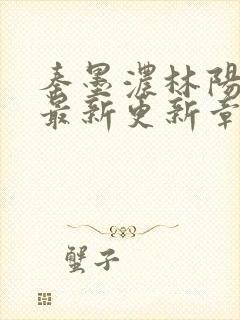 秦墨濃林陽
最新更新章
蟹子